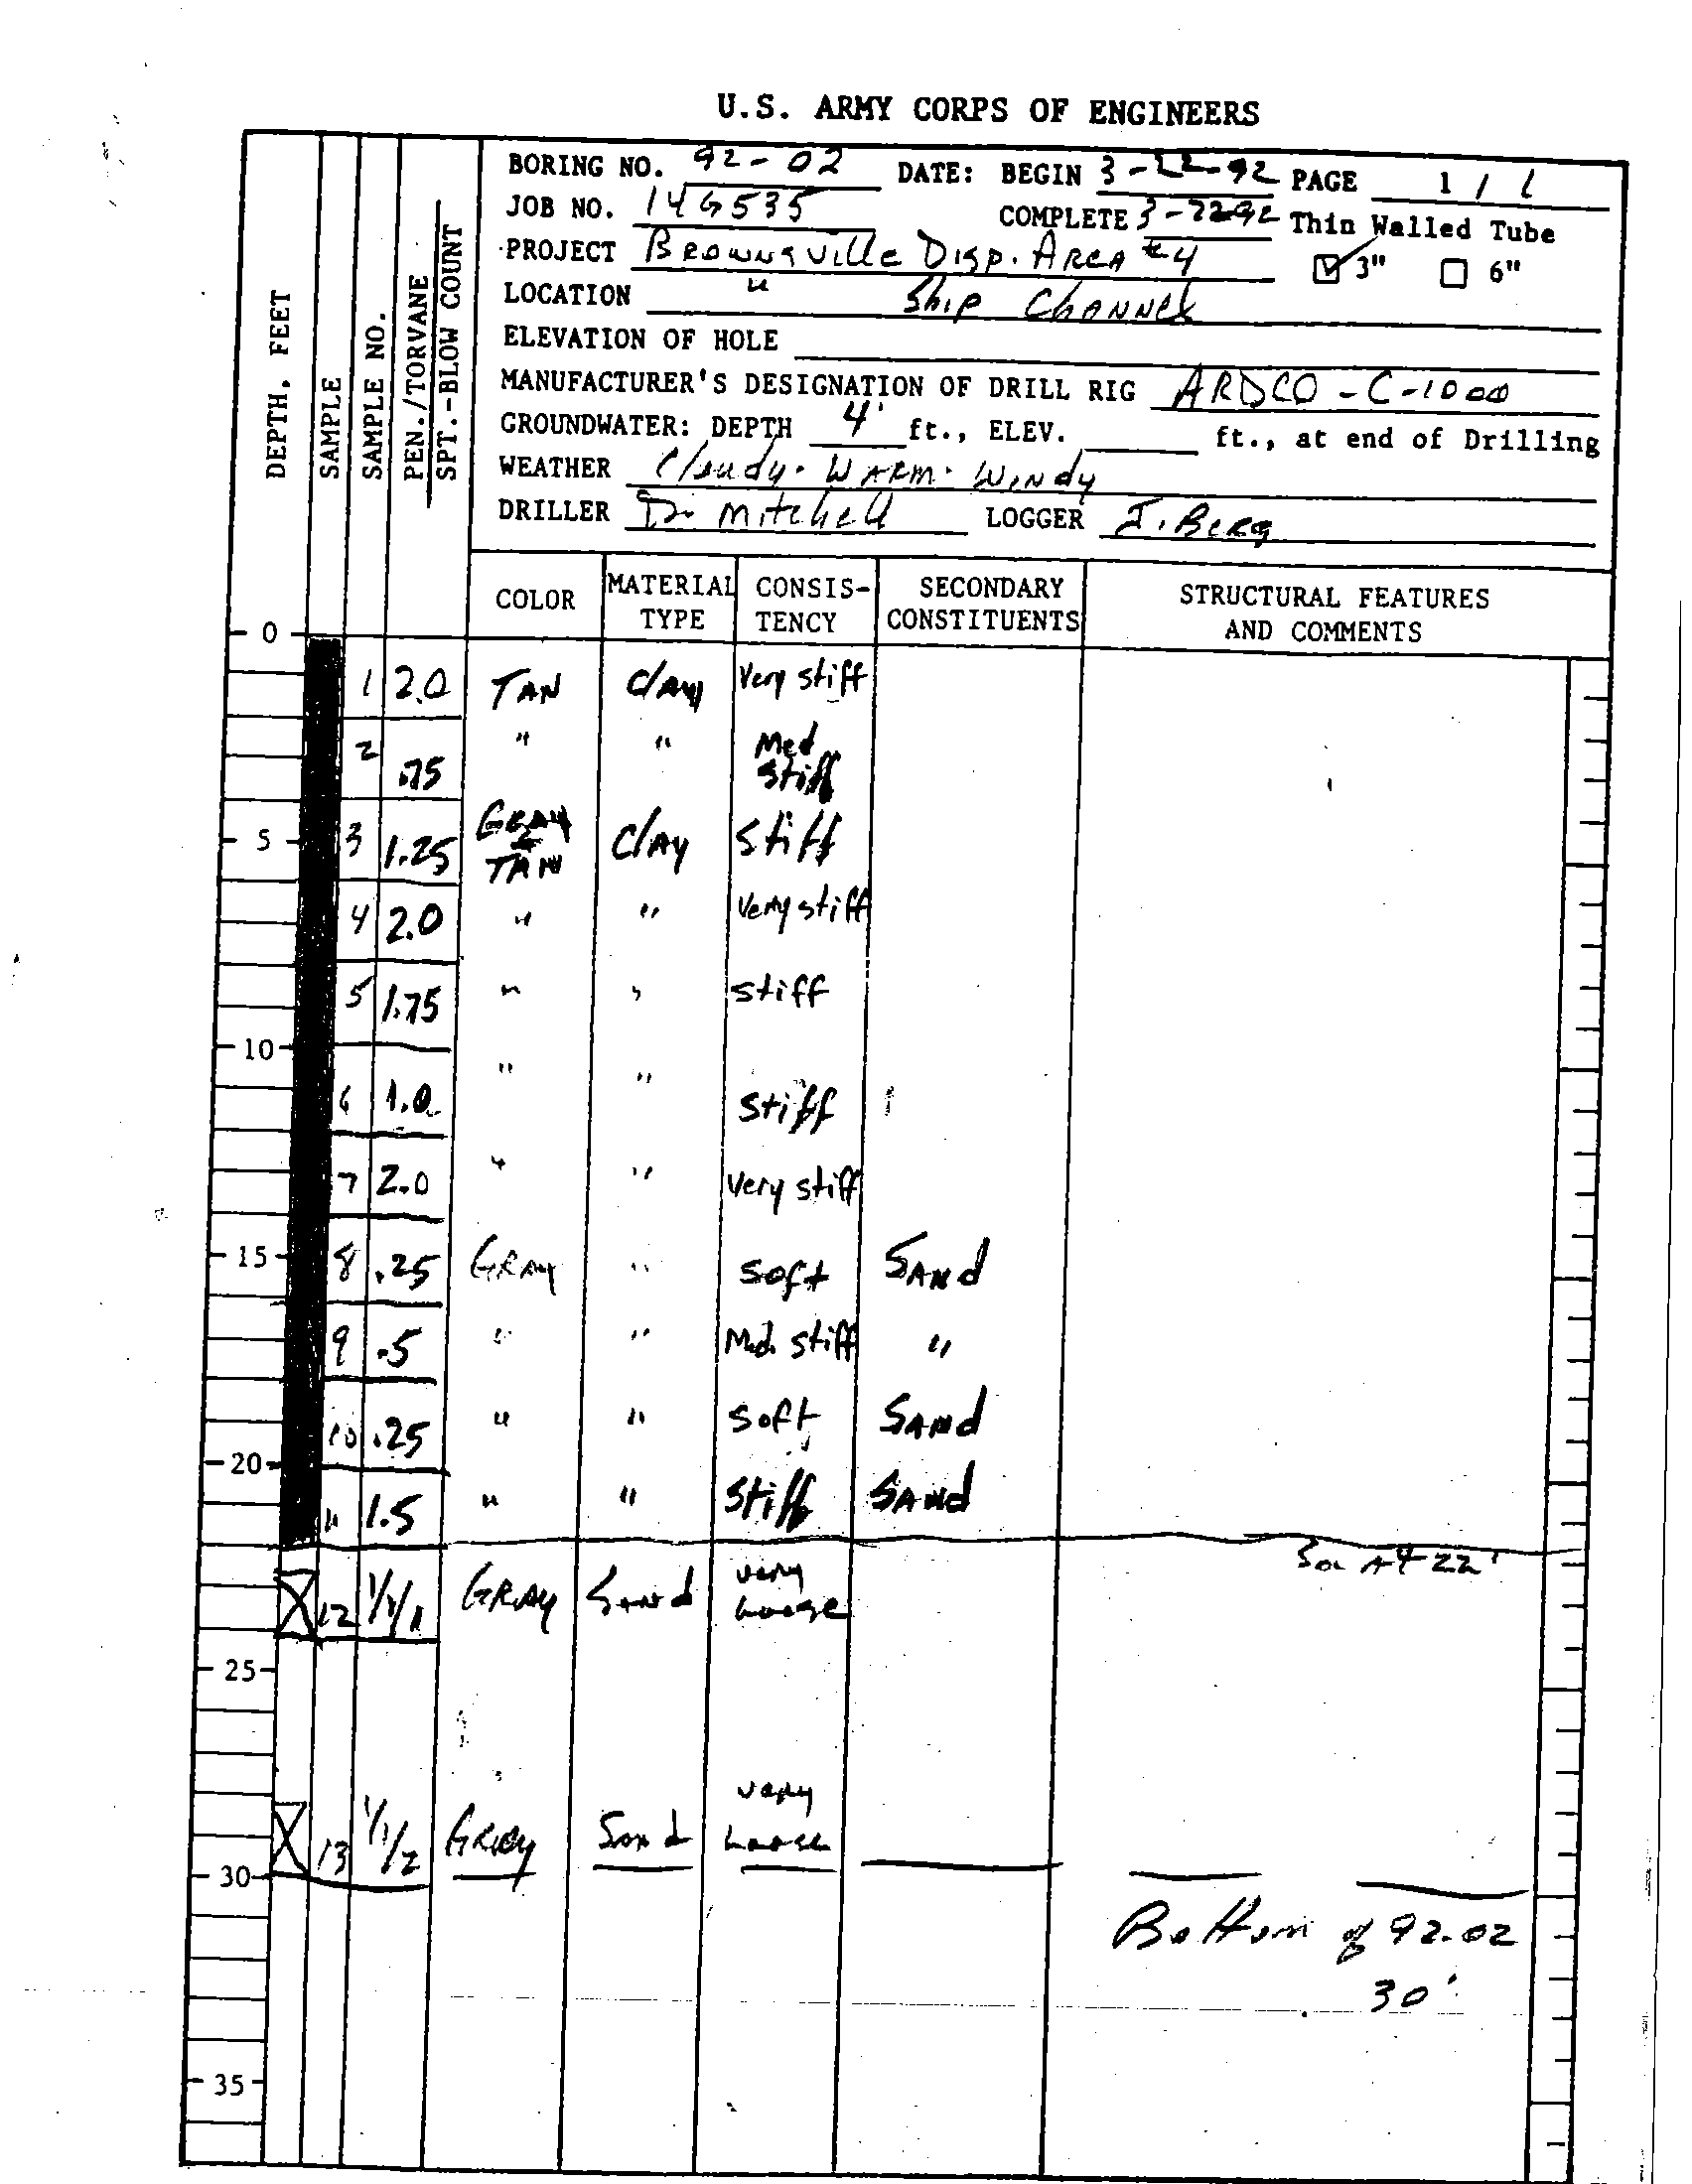 U.S. ARMY CORPS OF ENGINEERS
BORING NO. 92-02 DATE: BEGIN 3-22-92 PAGE 1 / 1
JOB NO. 14G535 COMPLETE 3-22-92 Thin Walled Tube
PROJECT BROWNSVILLE DISP. AREA #4 3" 6"
LOCATION " Ship CHANNEL
ELEVATION OF HOLE
MANUFACTURER'S DESIGNATION OF DRILL RIG ARDCO-C-1000
GROUNDWATER: DEPTH 4' ft., ELEV. ft., at end of Drilling
WEATHER Cloudy. WARM. WINdy
DRILLER D. Mitchell LOGGER J. BERG
DEPTH, FEET
SAMPLE
SAMPLE NO.
PEN./TORVANE
SPT.-BLOW COUNT
COLOR MATERIAL TYPE CONSIS-TENCY SECONDARY CONSTITUENTS STRUCTURAL FEATURES AND COMMENTS
0
1 2.0 TAN clay Very stiff
2 .75 " " Med stiff
5 3 1.25 GRAY & TAN clAy stiff
4 2.0 " " Very stiff
5 1.75 " " stiff
10
6 1.0 " " stiff
7 2.0 " " Very stiff
15 8 .25 GRAY " soft SANd
9 .5 " " Med. stiff "
10 .25 " " soft SANd
20
11 1.5 " " stiff SANd
At 22'
12 1/1/1 GRAY Sand very Loose
25
13 1/1/2 GRAY Sand very Loose
30
Bottom of 92.02
30'
35